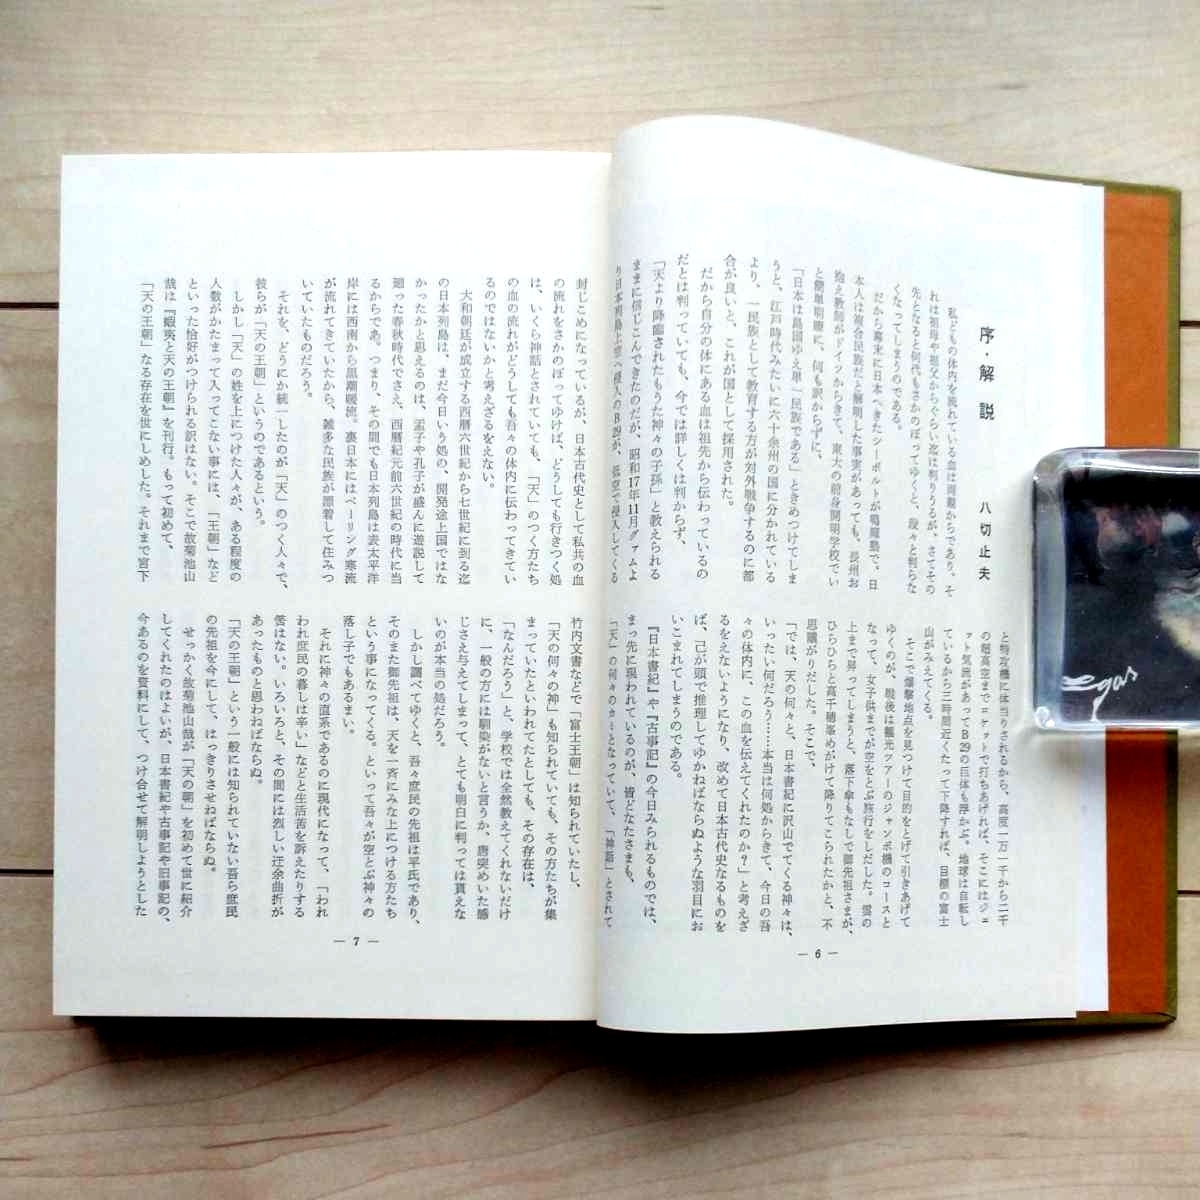 序・解説
八切止夫
私どもの体内を流れている血は両親からであり、そ
れは祖母や祖父からぐらい迄は判りうるが、さてその
先となると何代もさかのぼってゆくと、段々と判らな
くなってしまうのである。
だから幕末に日本へきたシーボルトが鳴滝塾で、日
本人は複合民族だと解明した事実があっても、長州お
抱え教師がドイツからきて、東大の前身開明学校でい
と簡単明瞭に、何も訳からずに、
「日本は島国ゆえ単一民族である」ときめつけてしま
うと、江戸時代みたいに六十余州の国に分かれている
より、一民族として教育する方が対外戦争するのに都
合が良いと、これが国として採用された。
だから自分の体にある血は祖先から伝わっているの
だとは判っていても、今では詳しくは判からず、
「天より降臨されたもうた神々の子孫」と教えられる
ままに信じこんできたのだが、昭和17年11月グァムよ
り日本列島上空へ侵入のB29が、低空で侵入してくる
と特攻機に体当りされるから、高度一万一千から二千
の超高空までロケットで打ちあげれば、そこにはジェ
ット気流があってB29の巨体も浮かぶ。地球は自転し
ているから三時間近くたって下降すれば、目標の富士
山がみえてくる。
そこで爆撃地点を見つけて目的をとげて引きあげて
ゆくのが、戦後は観光ツアーのジャンボ機のコースと
なって、女子供までが空をとぶ旅行をしだした。雲の
上まで昇ってしまうと、落下傘もなしで御先祖さまが、
ひらひらと高千穂峯めがけて降りてこられたかと、不
思議がりだした。そこで、
「では、天の何々と、日本書紀に沢山でてくる神々は、
いったい何だろう……本当は何処からきて、今日の吾
々の体内に、この血を伝えてくれたのか？」と考えざ
るをえない方々が多くなり、改めて日本古代史なるものを
ば、己が頭で推理してゆかねばならぬような羽目にお
いこまれてしまうのである。
『日本書紀』や『古事記』の今日みられるものでは、
まっ先に現われているのが、皆どなたさまも、
「天」の何々のカミとなっていて、「神話」とされて
— 6 —
封じこめになっているが、日本古代史として私共の血
の流れをさかのぼってゆけば、どうしても行きつく処
は、いくら神話とされていても、「天」のつく方たち
の血の流れがどうしても吾々の体内に伝わってきてい
るのではないかと考えざるをえない。
大和朝廷が成立する西暦六世紀から七世紀に到る迄
の日本列島は、まだ今日いう処の、開発途上国ではな
かったかと思えるのは、孟子や孔子が盛んに遊説して
廻った春秋時代でさえ、西暦紀元前六世紀の時代に当
るからであ。つまり、その間でも日本列島は表太平洋
岸には西南から黒潮暖流。裏日本にはベーリング寒流
が流れてきていたから、雑多な民族が漂着して住みつ
いていたものだろう。
それを、どうにか統一したのが「天」のつく人々で、
彼らが「天の王朝」というのであるという。
しかし「天」の姓を上につけた人々が、ある程度の
人数がかたまって入ってこない事には、「王朝」など
といった恰好がつけられる訳はない。そこで故菊池山
哉は『蝦夷と天の王朝』を刊行。もって初めて、
「天の王朝」なる存在を世にしめした。それまで宮下
竹内文書などで「富士王朝」は知られていたし、
「天の何々の神」も知られていても、その方たちが集
まっていたといわれてたとしても、その存在は、
「なんだろう」と、学校では全然教えてくれないだけ
に、一般の方には馴染がないと言うか、唐突めいた感
じさえ与えてしまって、とても明白に判っては貰えな
いのが本当の処だろう。
しかし調べてゆくと、吾々庶民の先祖は平氏であり、
そのまた御先祖は、天を一斉にみな上につける方たち
という事になってくる。といって吾々が空とぶ神々の
落し子でもあるまい。
それに神々の直系であるのに現代になって、「われ
われ庶民の暮しは辛い」などと生活苦を訴えたりする
筈はない。いろいろと、その間には烈しい迂余曲折が
あったものと思わねばならぬ。
「天の王朝」という一般には知られていない吾ら庶民
の先祖を今にして、はっきりさせねばならぬ。
せっかく故菊池山哉が「天の朝」を初めて世に紹介
してくれたのはよいが、日本書紀や古事記や旧事記の、
今あるのを資料にして、つけ合せて解明しようとした
— 7 —
egas